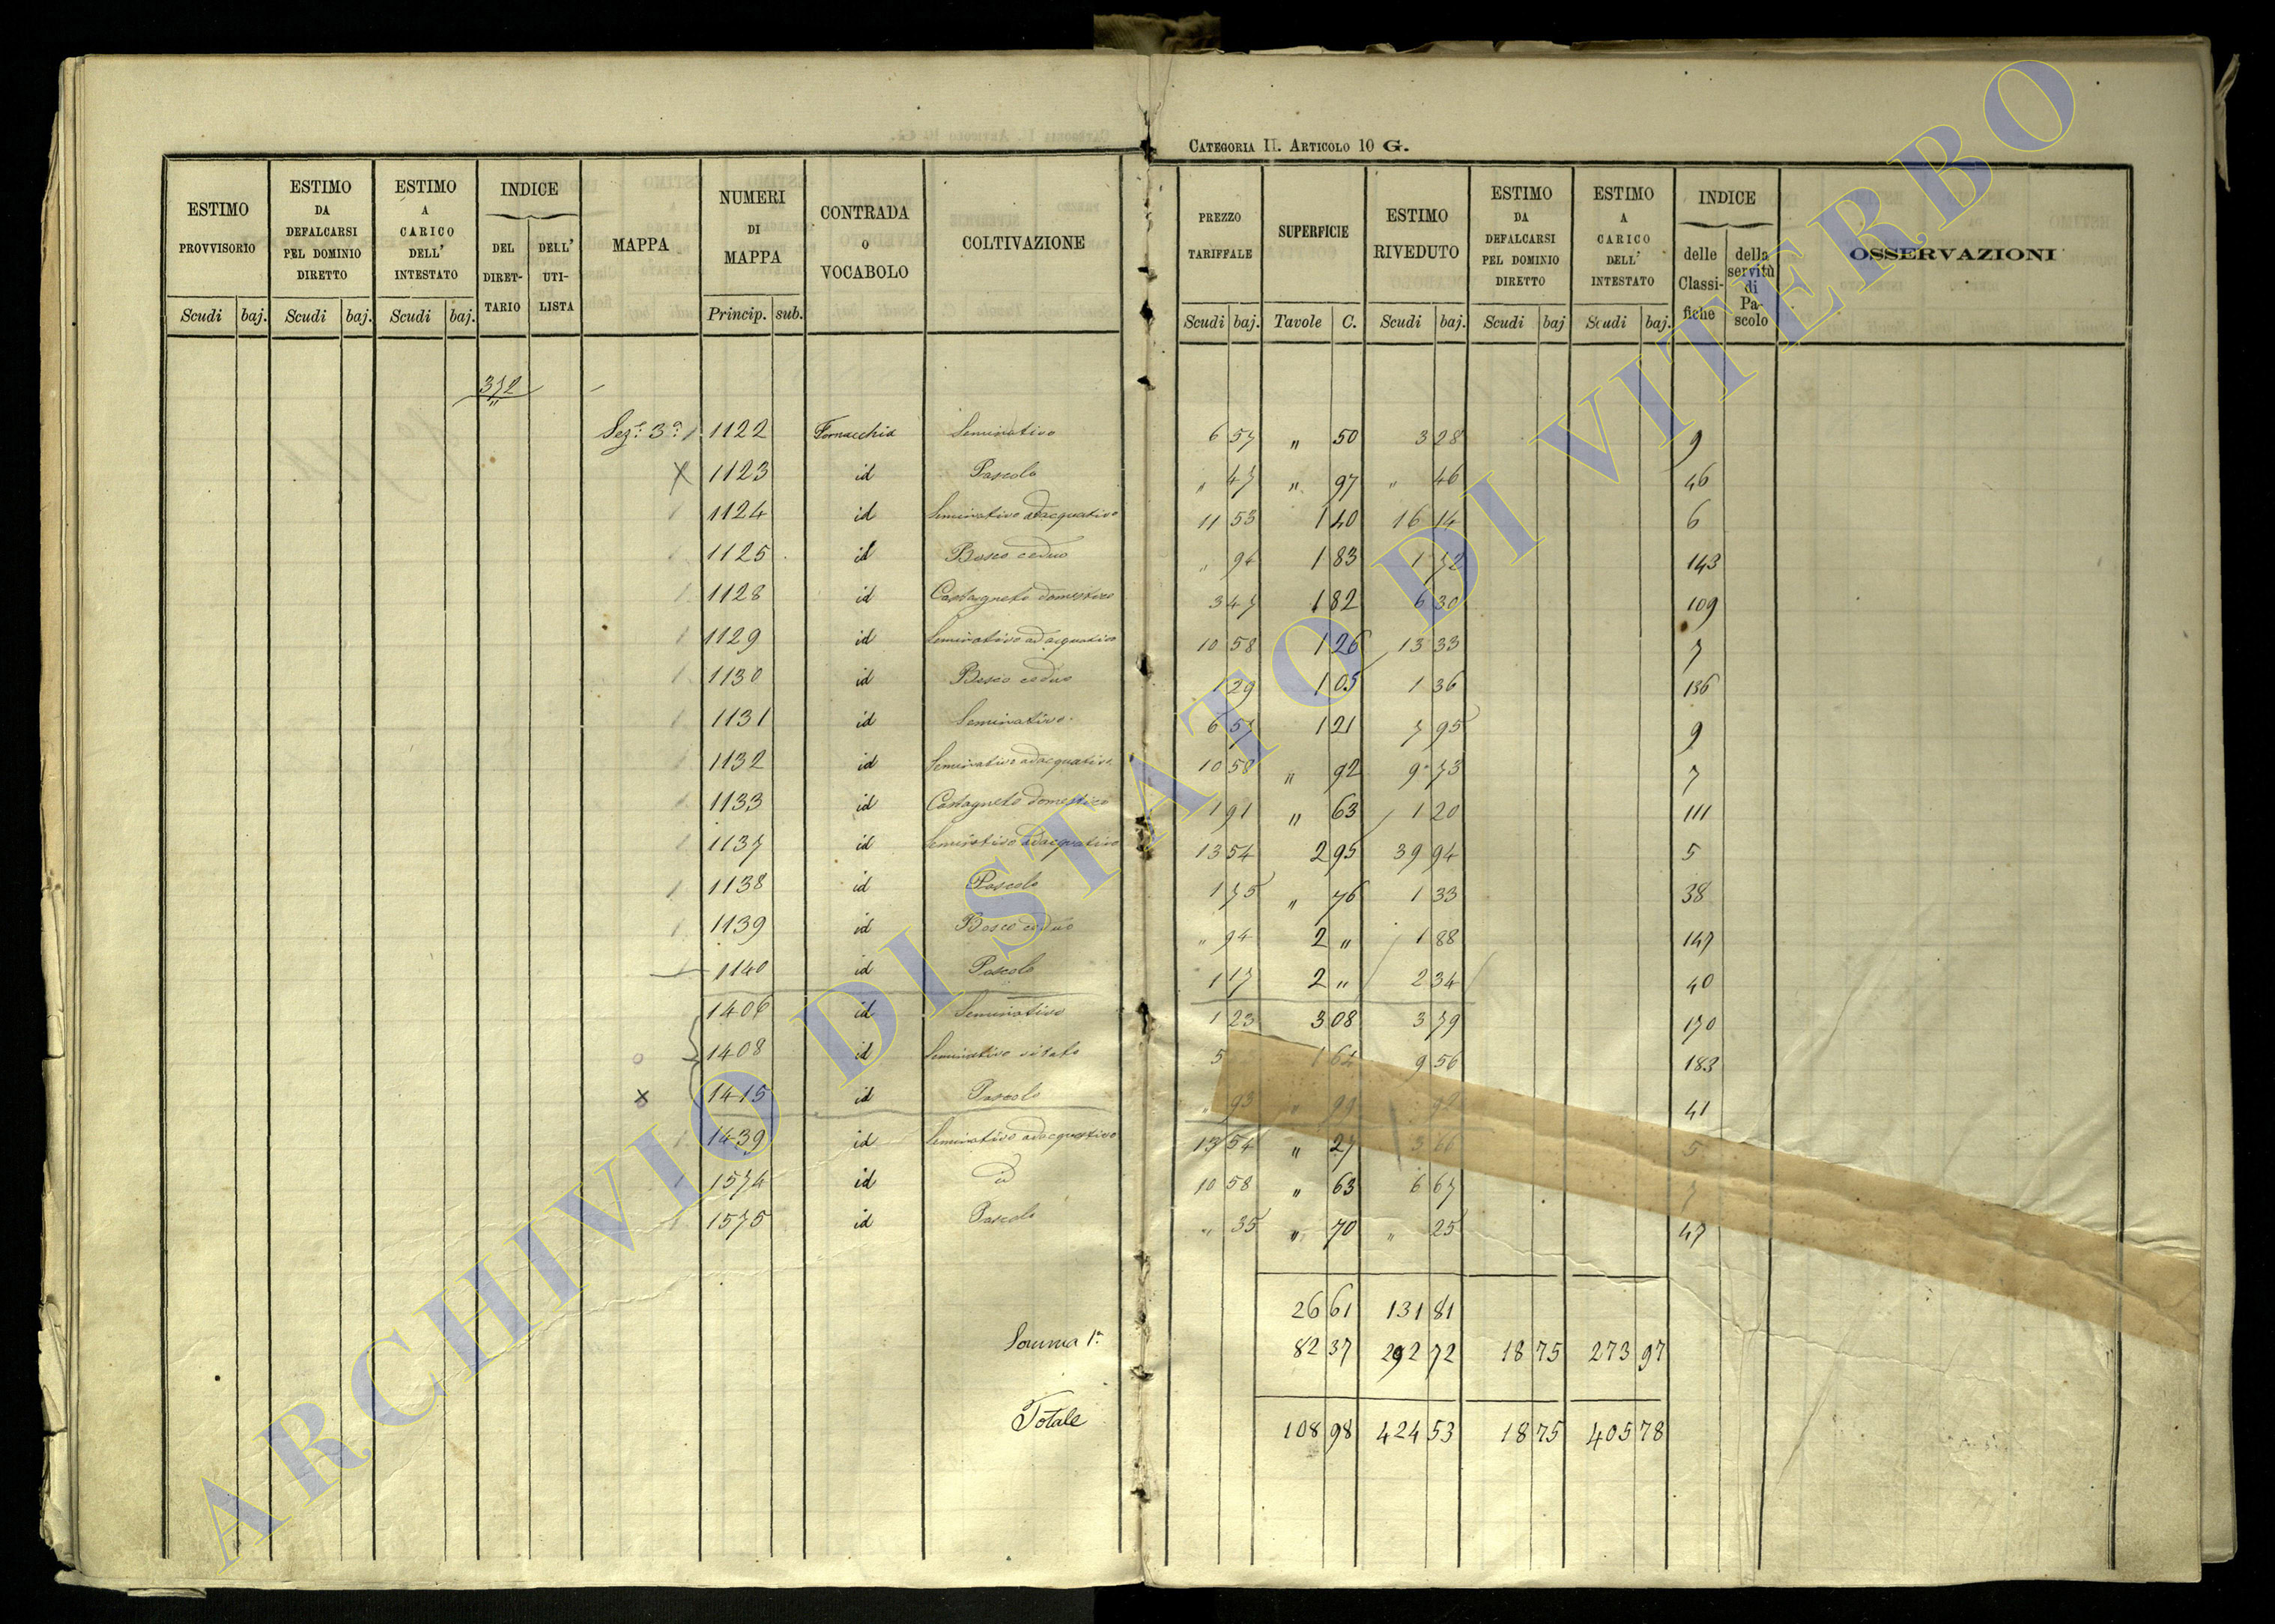 CATEGORIA II. ARTICOLO 10 G.
ESTIMO PROVVISORIO | ESTIMO DA DEFALCARSI PEL DOMINIO DIRETTO | ESTIMO A CARICO DELL' INTESTATO | INDICE DEL DIRETTARIO | DELL' UTILISTA | MAPPA | NUMERI DI MAPPA | CONTRADA O VOCABOLO | COLTIVAZIONE | PREZZO TARIFFALE | SUPERFICIE | ESTIMO RIVEDUTO | ESTIMO DA DEFALCARSI PEL DOMINIO DIRETTO | ESTIMO A CARICO DELL' INTESTATO | INDICE delle Classifiche | della servitù di Pascolo | OSSERVAZIONI
Scudi baj. Scudi baj. Scudi baj. Princip. sub. Scudi baj. Tavole C. Scudi baj. Scudi baj Scudi baj.
372
Sez.e 3a 1122 Fornacchia Seminativo 6 57 " 50 3 28 9
1123 id Pascolo " 47 " 97 " 46 46
1124 id Seminativo adacquativo 11 53 1 40 16 14 6
1125 id Bosco ceduo " 94 1 83 1 72 143
1128 id Castagneto domestico 3 47 1 82 6 30 109
1129 id Seminativo adacquativo 10 58 1 26 13 33 7
1130 id Bosco ceduo 1 29 1 05 1 36 136
1131 id Seminativo 6 57 1 21 7 95 9
1132 id Seminativo adacquativo 10 58 " 92 9 73 7
1133 id Castagneto domestico 1 91 " 63 1 20 111
1137 id Seminativo adacquativo 13 54 2 95 39 94 5
1138 id Pascolo 1 75 " 76 1 33 38
1139 id Bosco ceduo " 94 2 " 1 88 147
1140 id Pascolo 1 17 2 " 2 34 40
1406 id Seminativo 1 23 3 08 3 79 170
1408 id Seminativo vitato 5 1 64 9 56 183
1415 id Pascolo " 93 " 99 92 41
1439 id Seminativo adacquativo 13 54 " 27 3 66 5
1574 id id 10 58 " 63 6 67 7
1575 id Pascolo " 35 " 70 " 25 47
26 61 131 81
Somma 1a 82 37 292 72 18 75 273 97
Totale 108 98 424 53 18 75 405 78
ARCHIVIO DI STATO DI VITERBO